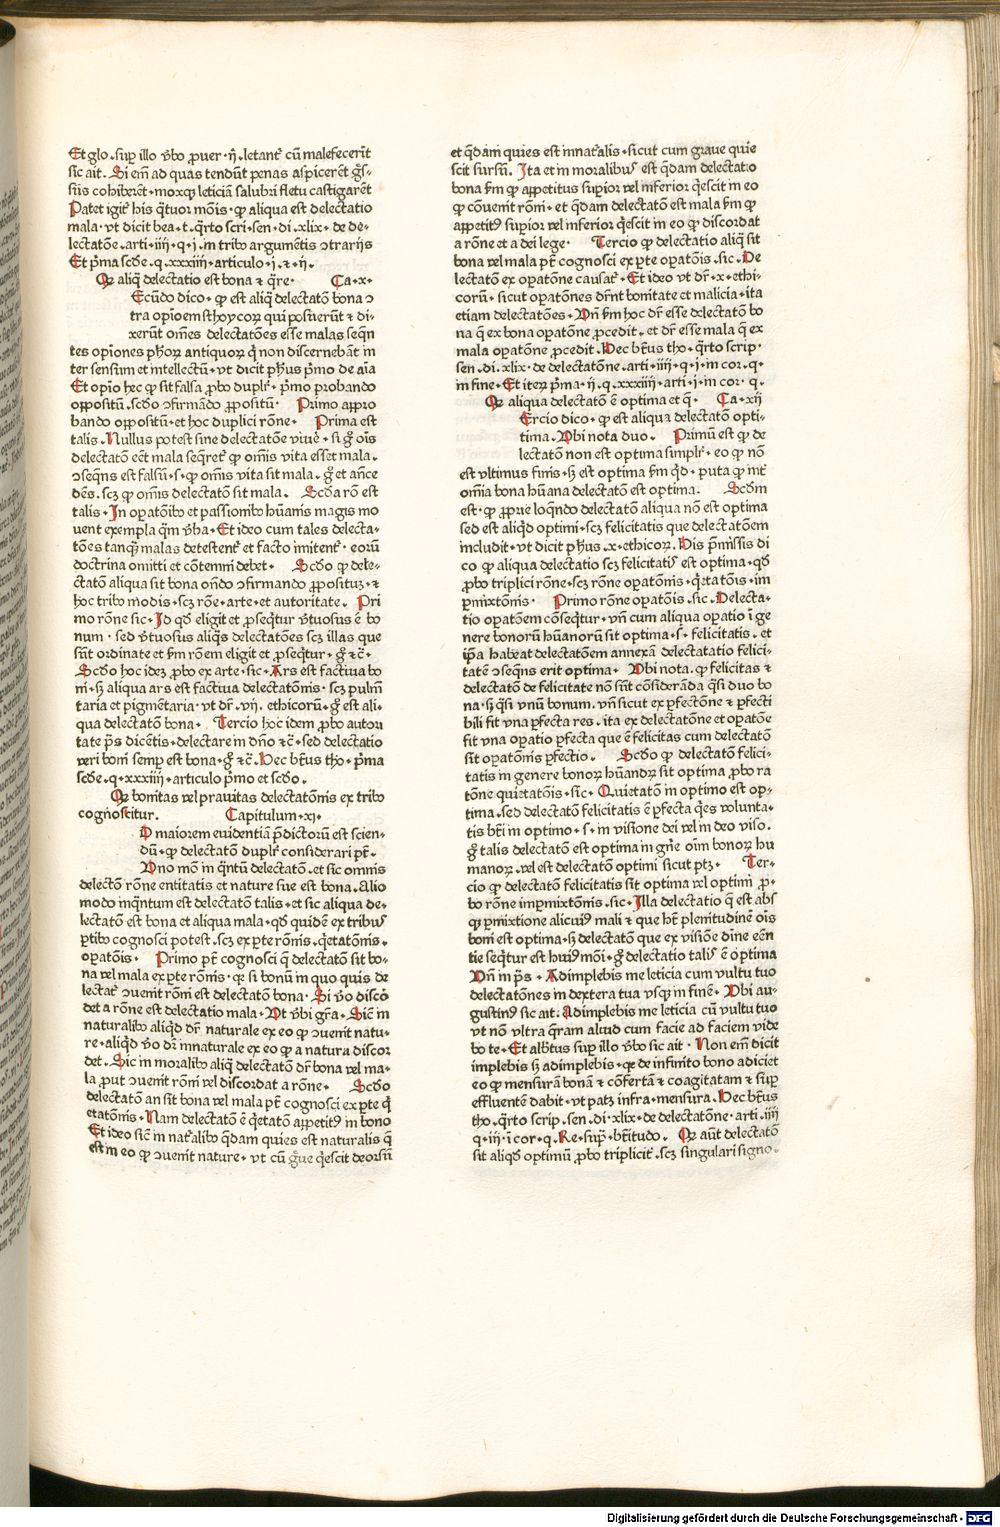 Et glo .sup illo v̄bo ꝓuer .ij. letant᷑ cū malefecerīt
sic ait. Si em̄ ad quas tendūt penas aspicerēt gr̄s-
sus cohiberēt. moxqꝫ leticiā salubri fletu castigarēt
Patet igit᷑ his qͣtuor mōis. ꝙ aliqua est delectatio
mala. vt dicit bea. t. qͣrto scri. sen. di. xlix. de de-
lectatōe. arti. iiij. q. j. in tribꝰ argumētis ↄtrarijs
Et pͥma scd̄e. q. xxxiiij. articulo. j. ⁊. ij.
Qꝫ aliq̄ delectatio est bona ⁊ qͣre. Ca. x.
Ecūdo dico. ꝙ est aliq̄ delectatō bona ↄ
tra opioem sthoycoꝝ qui posuerūt ⁊ di-
xerūt om̄es delectatōes esse malas seqn̄
tes opīones ph̄oꝝ antiquoꝝ q̇ non discernebāt in
ter sensum et intellectū. vt dicit ph̄us pͥmo de aīa
Et opīo hec ꝙ sit falsa ꝓbo duplr̄. pͥmo probando
oppositū. scd̄o ↄfirmādo ꝓpositū. Primo appro
bando oppositū. et hoc duplici rōne. Prima est
talis. Nullus potest sine delectatōe viuere. si gͦ oīs
delectatō eēt mala seqͣret᷑ ꝙ om̄is vita esset mala.
ↄseqn̄s est falsū. s. ꝙ om̄is vita sit mala. gͦ et añce
dēs. scꝫ ꝙ om̄is delectatō sit mala. Scd̄a rō est
talis. In opatōibꝰ et passionibꝰ hūanis magis mo
uent exempla qͣm v̄ba. Et ideo cum tales delecta-
tōes tanqͣꝫ malas detestent᷑ et facto imitent᷑. eorū
doctrina omitti et cōtemni debet. Scd̄o ꝙ dele-
ctatō aliqua sit bona on̄do ↄfirmando ꝓpositūꝫ. ⁊
hoc tribꝰ modis. scꝫ rōe. arte. et autoritate. Pri
mo rōne sic. Id qd̄ eligit et ꝓseqͥtur v̄tuosus ē bo
num. sed v̄tuosus aliqͣs delectatōes scꝫ illas que
sūt ordinate et km̄ rōem eligit et ꝓseqͥtur. gͦ ⁊c̄.
Scd̄o hoc ideꝫ ꝓbo ex arte. sic. Ars est factiua bo
ni. sꝫ aliqua ars est factiua delectatōnis. scꝫ pulm̄
taria et pigmētaria. vt dr̄. vij. ethicorū. gͦ est ali-
qua delectatō bona. Tercio hoc idem ꝓbo autori
tate p̄s dicētis. delectare in dn̄o ⁊c̄. sed delectatio
veri boni semꝑ est bona. gͦ ⁊c̄. Hec bt̄us tho. pͥma
scd̄e. q. xxxiiij. articulo pͥmo et scd̄o.
Qꝫ bonitas vel prauitas delectatōnis ex tribꝰ
cognoscitur. Capitulum. xj.
D maiorem euidentiā p̄dictorū est scien-
dū. ꝙ delectatō duplr̄ considerari pt̄.
Vno mō inqͣntū delectatō. et sic omnis
delectō rōne entitatis et nature sue est bona. Alio
modo inqͣntum est delectatō talis. et sic aliqua de-
lectatō est bona et aliqua mala. qd̄ quidē ex tribꝰ
ꝑtibꝰ cognosci potest. scꝫ ex ꝑte rōnis. qͥetatōnis.
opatōis. Primo pt̄ cognosci q̄ delectatō sit bo-
na vel mala ex ꝑte rōnis. qꝛ si bonū in quo quis de
lectat᷑ ↄuenit rōni est delectatō bona. Si v̄o discor
det a rōne est delectatio mala. Vt v̄bi gr̄a. Sic in
naturalibꝰ aliqd̄ dr̄ naturale ex eo ꝙ ↄuenit natu-
re. aliqd̄ v̄o dr̄ innaturale ex eo ꝙ a natura discor
det. Sic in moralibꝰ aliq̄ delectatō dr̄ bona vel ma-
la ꝓut ↄuenit rōni vel discordat a rōne. Scd̄o
delectatō an sit bona vel mala pt̄ cognosci ex ꝑte q̇
etatōnis. Nam delectatō ē qͥetatō appetitꝰ in bono
Et ideo sic̄ in nat᷑alibꝰ qͣdam quies est naturalis q̄
est in eo ꝙ ↄuenit nature. vt cū gͣue qͥescit deorsū
et qͣdam quies est innat᷑alis. sicut cum graue quie
scit sursū. Ita et in moralibꝰ est qͣdam delectatio
bona km̄ ꝙ appetitus supior vel inferior qͥescit in eo
ꝙ cōuenit rōni. et qͣdam delectatō est mala km̄ ꝙ
appetitꝰ supior vel inferior qͥescit in eo ꝙ discordat
a rōne et a dei lege. Tercio ꝙ delectatio aliq̄ sit
bona vel mala pt̄ cognosci ex ꝑte opatōis. sic. De
lectatō ex opatōne causat᷑. Et ideo vt dr̄. x. ethi-
corū. sicut opatōnes dr̄nt bonitate et malicia. ita
etiam delectatōes. Vn̄ km̄ hoc dr̄ esse delectatō bo
na q̄ ex bona opatōne ꝓcedit. et dr̄ esse mala q̄ ex
mala opatōne ꝓcedit. Hec bt̄us tho. qͣrto scrip.
sen. di. xlix. de delectatōne. arti. iiij. q. j. in cor. q.
in fine. Et iteꝝ pͥma. ij. q. xxxiiij. arti. j. in cor. q.
Qꝫ aliqua delectatō ē optima et q̄. Ca. xij
Ercio dico. ꝙ est aliqua delectatō opti-
tima. Vbi nota duo. Primū est ꝙ de
lectatō non est optima simplr̄. eo ꝙ nō
est vltimus finis. sꝫ est optima km̄ qd̄. puta ꝙ int̄
om̄ia bona hūana delectatō est optima. Scd̄m
est. ꝙ ꝓprie loqn̄do delectatō aliqua nō est optima
sed est aliqd̄ optimi. scꝫ felicitatis que delectatōem
includit. vt dicit ph̄us. x. ethicoꝝ. His p̄missis di
co ꝙ aliqua delectatio scꝫ felicitatis est optima. qd̄
ꝓbo triplici rōne. scꝫ rōne opatōnis. qͥetatōis. im
ꝑmixtōnis. Primo rōne opatōis. sic. Delecta-
tio opatōem cōseqͥtur. vn̄ cum aliqua opatio ī ge
nere bonorū hūanorū sit optima. s. felicitatis. et
ip̄a habeat delectatōem annexā delectatatio felici-
tatē ↄseqn̄s erit optima. Vbi nota. ꝙ felicitas ⁊
delectatō de felicitate nō sūt cōsideranda qͣsi duo bo
na. sꝫ qͣsi vnū bonum. vn̄ sicut ex ꝑfectōne ⁊ ꝑfecti
bili fit vna ꝑfecta res. ita ex delectatōne et opatōe
fit vna opatio ꝑfecta que ē felicitas cum delectatō
sit opatōnis ꝑfectio. Scd̄o ꝙ delectatō felici-
tatis in genere bonoꝝ hūanoꝝ sit optima ꝓbo ra
tōne quietatōis. sic. Quietatō in optimo est op-
tima. sed delectatō felicitatis ē ꝑfecta qͥes volunta-
tis bt̄i in optimo. s. in visione dei vel in deo viso.
gͦ talis delectatō est optima in gn̄e oīm bonoꝝ hu
manoꝝ. vel est delectatō optimi sicut ptꝫ. Ter-
cio ꝙ delectatō felicitatis sit optima vel optimi ꝓ-
bo rōne imꝑmixtōnis. sic. Illa delectatio q̄ est absꝫ
qꝫ ꝑmixtione alicuiꝰ mali ⁊ que hꝫ plenitudinē oīs
boni est optima. sꝫ delectatō que ex visiōe dīne eēn
tie seqͥtur est huiꝰmōi. gͦ delectatio talis ē optima
Vn̄ in p̄s. Adimplebis me leticia cum vultu tuo
delectatōnes in dextera tua vsqꝫ in finē. Vbi au-
gustinꝰ sic ait. Adimplebis me leticia cū vultu tuo
vt nō vltra qͣram aliud cum facie ad faciem vide
bo te. Et albt̄us sup illo v̄bo sic ait. Non em̄ dicit
implebis sꝫ adimplebis. qꝛ de infinito bono adiciet
eo ꝙ mensurā bonā ⁊ cōfertā ⁊ coagitatam ⁊ sup
effluentē dabit. vt patꝫ infra. mensura. Hec bt̄us
tho. qͣrto scrip. sen. di. xlix. de delectatōne. arti. iiij
q. iij. ī cor. q. Re. sup. bt̄itudo. Qꝫ aūt delectatō
sit aliqd̄ optimū ꝓbo triplicit᷑. scꝫ singulari signo.
Digitalisierung gefördert durch die Deutsche Forschungsgemeinschaft - DFG